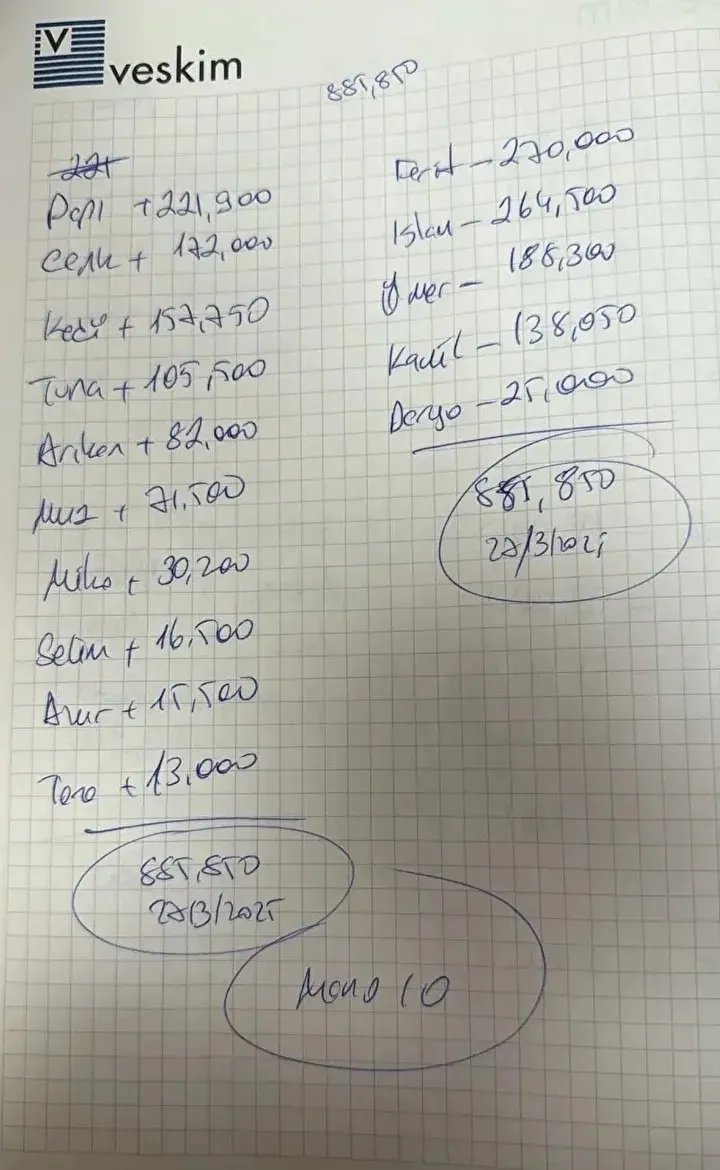 V
veskim
885,850
221
Papı +221,900
+ 172,000
Kedi + 157,750
Tuna + 105,500
Ariken + 82,000
+ 71,500
Miko + 30,200
Selim + 16,500
+ 15,500
Toro + 13,000
885,850
27/3/2025
Ferit - 270,000
Islam - 264,500
Ömer - 188,300
Kamil - 138,050
Derya - 25,000
885,850
27/3/2025
10